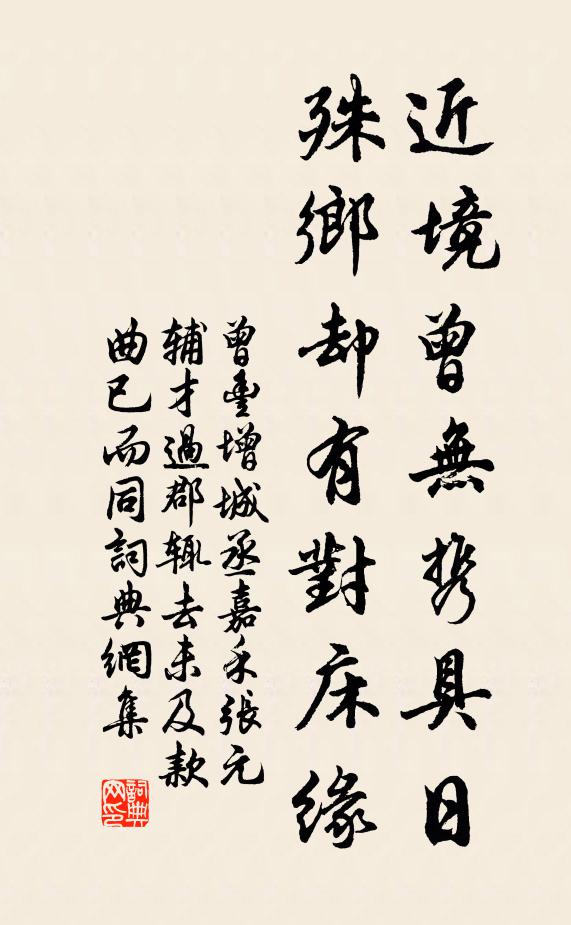 近境曾無携具日
殊鄉却有對床緣
曾豐增城丞嘉禾張元
辅才過郡辄去未及款
曲已而同詞典網集
詞典网印